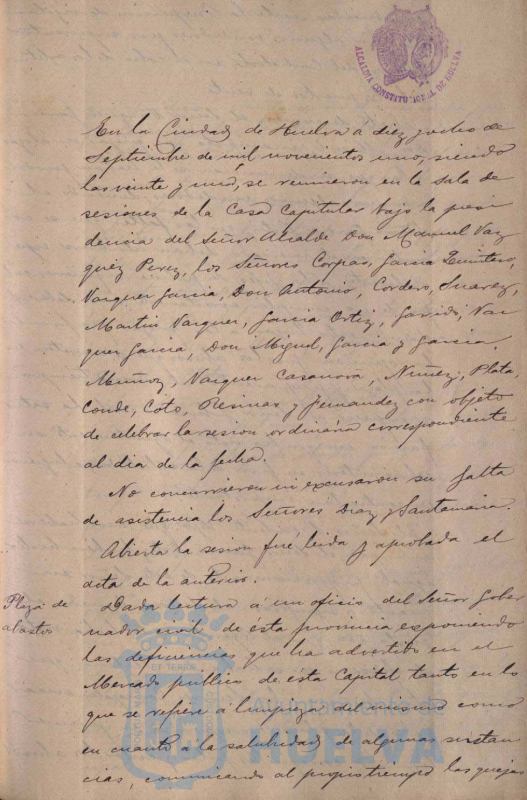 ALCALDIA CONSTITUCIONAL DE HUELVA
En la Ciudad de Huelva a diez y ocho de
Septiembre de mil novecientos uno, siendo
las veinte y una, se reunieron en la sala de
sesiones de la Casa Capitular bajo la presi
dencia del Señor Alcalde Don Manuel Vaz
quez Perez, los Señores Corpas, Garcia Quintero,
Vazquez Garcia, Don Antonio, Cordero, Suarez,
Martin Vazquez, Garcia Ortiz, Garrido, Vaz
quez Garcia, Don Miguel, Garcia y Garcia,
Muñoz, Vazquez Casanova, Nuñez, Plata,
Conde, Coto, Resinas y Fernandez con objeto
de celebrar la sesion ordinaria correspondiente
al dia de la fecha.
No concurrieron ni excusaron su falta
de asistencia los Señores Diaz y Santamaria.
Abierta la sesion fué leida y aprobada el
acta de la anterior.
Plaza de
abastos
Dada lectura á un oficio del Señor Gober
nador civil de ésta provincia exponiendo
las deficiencias que ha advertido en el
Mercado público de ésta Capital tanto en lo
que se refiere á limpieza del mismo como
en cuanto á la salubridad de algunas sustan
cias, comunicando al propio tiempo las quejas
HUELVA